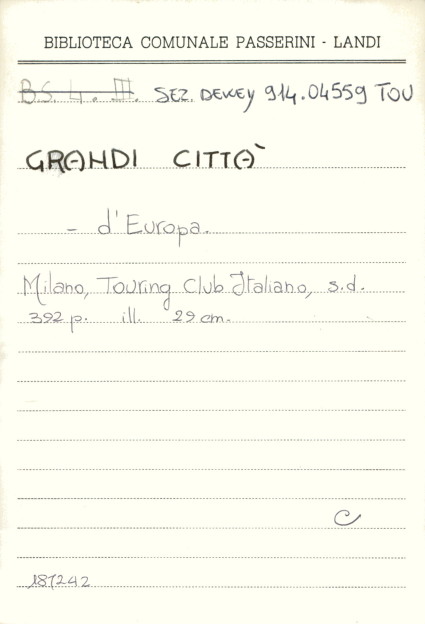 BIBLIOTECA COMUNALE PASSERINI - LANDI
BS. 4. III. SEZ. DEWEY 914.04559 TOU
GRANDI CITTÀ
- d'Europa.
Milano, Touring Club Italiano, s.d.
392 p. ill. 29 cm.
C
187242